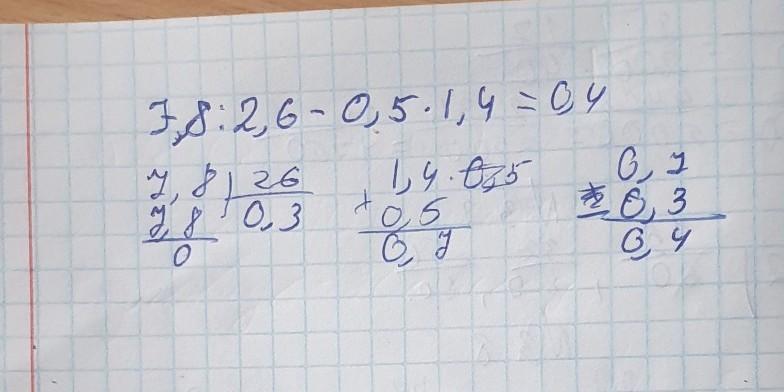 7,8:2,6 - 0,5·1,4 = 0,4
7,8 | 26
7,8 | 0,3
0
1,4 · 0,5
+ 0,5
0,7
0,7
- 0,3
0,4